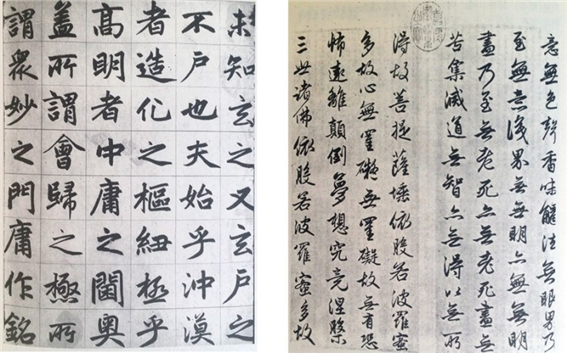 未知玄之又玄戶之
不戶也夫始乎沖漠
者造化之樞紐極乎
高明者中庸之閫奧
蓋所謂會歸之極所
謂眾妙之門庸作銘
意無色聲香味觸法無眼界乃
至無意識界無無明亦無無明
盡乃至無老死亦無老死盡無
苦集滅道無智亦無得以無所
得故菩提薩埵依般若波羅蜜
多故心無罣礙無罣礙故無有恐
怖遠離顛倒夢想究竟涅槃
三世諸佛依般若波羅蜜多故